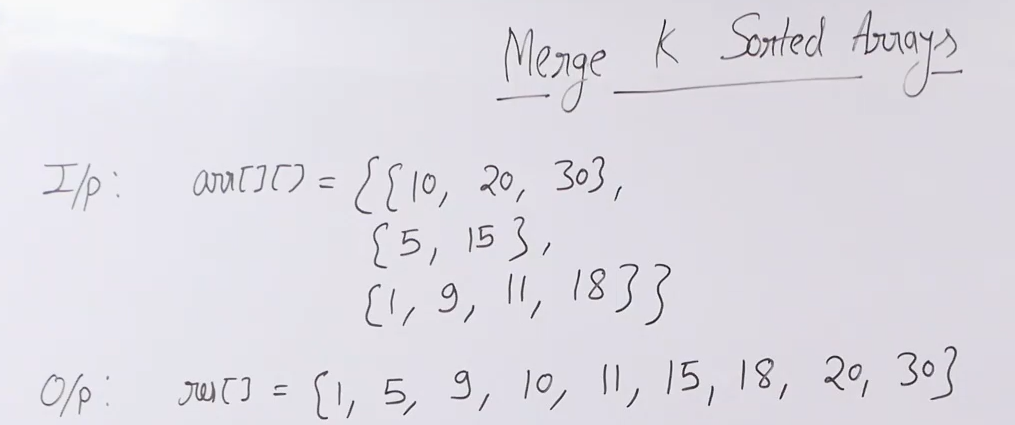 Merge K Sorted Arrays
I/p: arr[][] = {{10, 20, 30},
{5, 15},
{1, 9, 11, 18}}
O/p: res[] = {1, 5, 9, 10, 11, 15, 18, 20, 30}